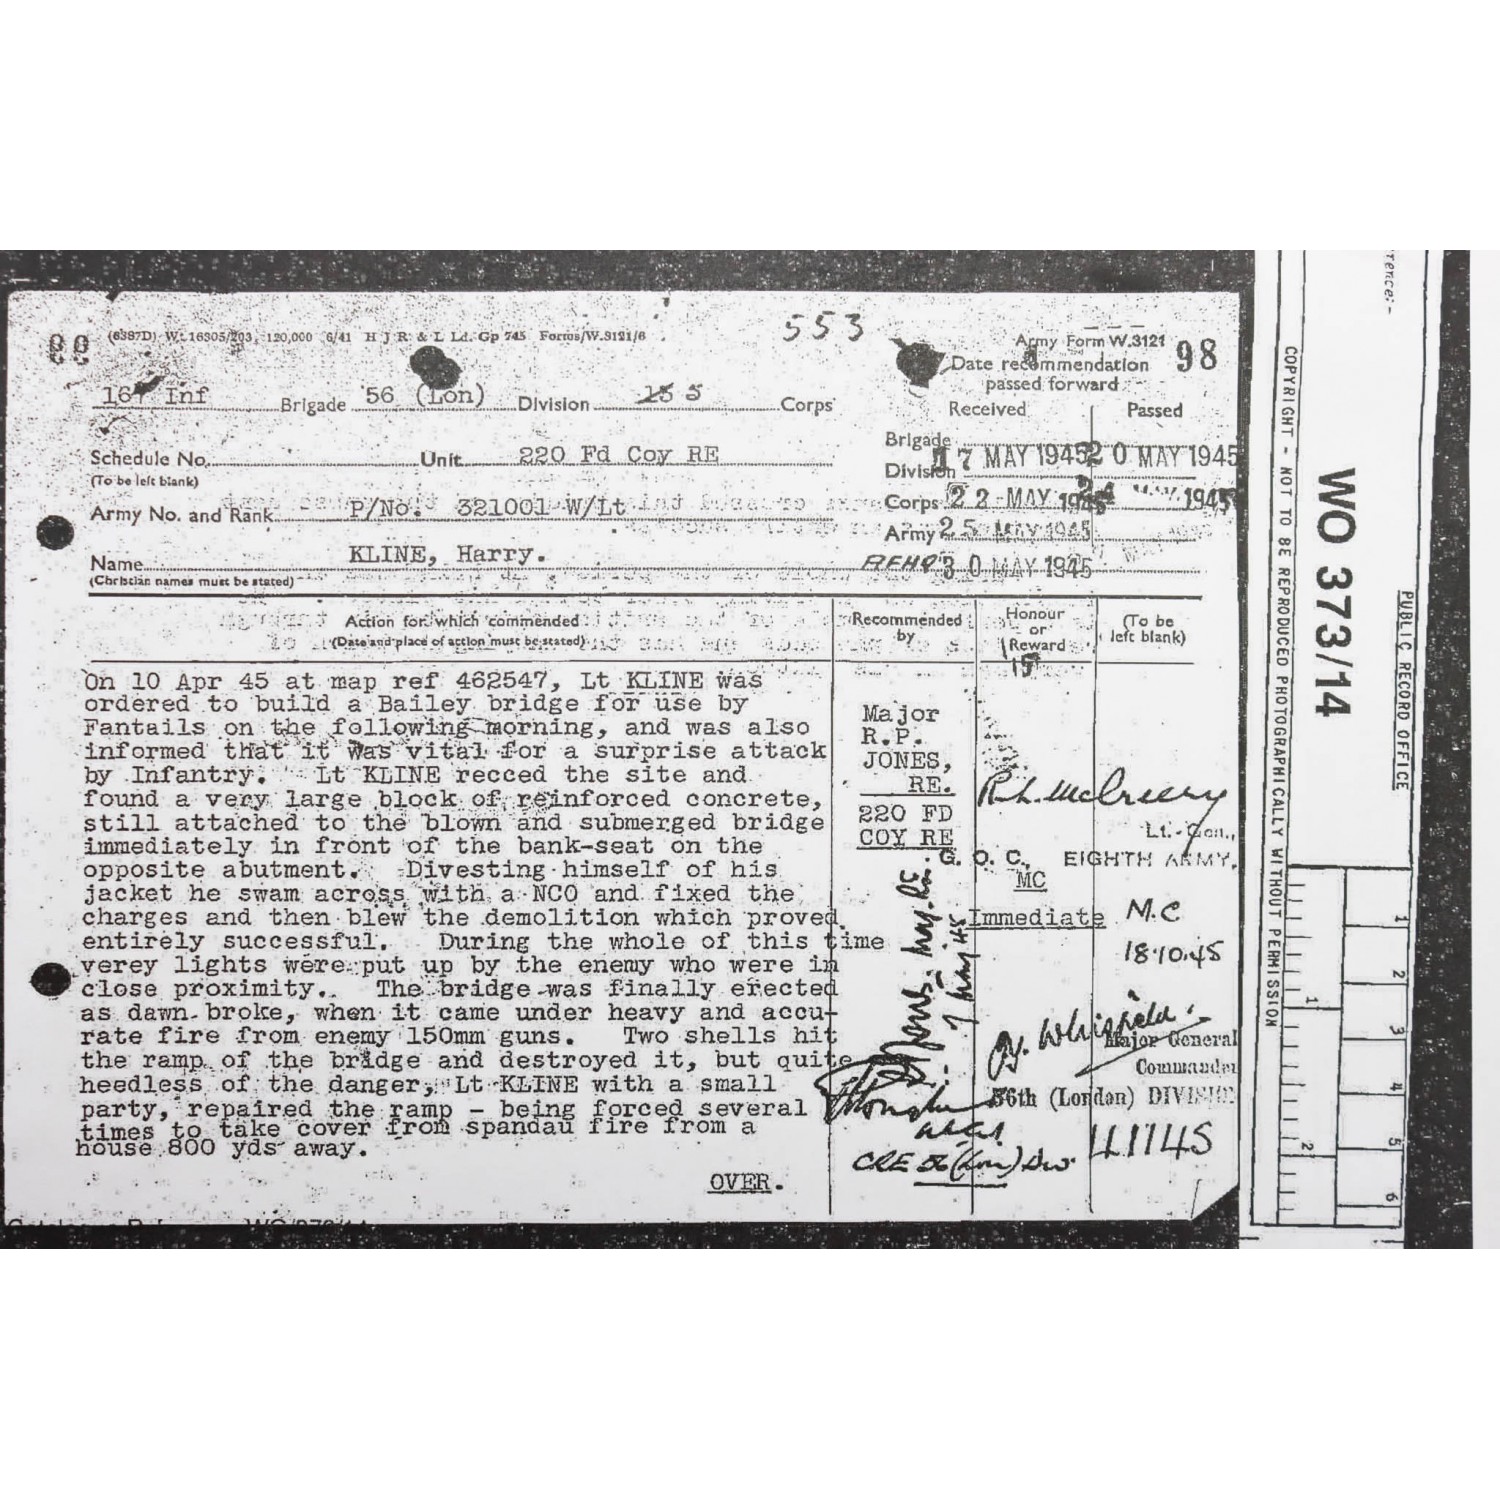 99 (6387D) Wt. 16305/203, 120,000 6/41 H J R & L Ld. Gp 745 Forms/W.3121/6
553
Army Form W.3121 98
Date recommendation
passed forward
167 Inf Brigade 56 (Lon) Division 5 Corps
Received Passed
Brigade
Division 17 MAY 1945 20 MAY 1945
Schedule No. Unit 220 Fd Coy RE
(To be left blank)
Corps 22 MAY 1945 24 MAY 1945
Army No. and Rank P/No. 321001 W/Lt
Army 25 MAY 1945
Name KLINE, Harry.
(Christian names must be stated)
AFHQ 30 MAY 1945
Action for which commended
(Date and place of action must be stated)
Recommended
by
Honour
or
Reward
(To be
left blank)
On 10 Apr 45 at map ref 462547, Lt KLINE was
ordered to build a Bailey bridge for use by
Fantails on the following morning, and was also
informed that it was vital for a surprise attack
by Infantry. Lt KLINE recced the site and
found a very large block of reinforced concrete,
still attached to the blown and submerged bridge
immediately in front of the bank-seat on the
opposite abutment. Divesting himself of his
jacket he swam across with a NCO and fixed the
charges and then blew the demolition which proved
entirely successful. During the whole of this time
verey lights were put up by the enemy who were in
close proximity. The bridge was finally erected
as dawn broke, when it came under heavy and accu-
rate fire from enemy 150mm guns. Two shells hit
the ramp of the bridge and destroyed it, but quite
heedless of the danger, Lt KLINE with a small
party, repaired the ramp - being forced several
times to take cover from spandau fire from a
house 800 yds away.
OVER.
Major
R.P.
JONES,
RE.
220 FD
COY RE
7 May 45
CRE 56 (Lon) Div.
R.L. McCreery
Lt.-Gen.,
G. O. C., EIGHTH ARMY.
MC
Immediate
M.C
18.10.45
J.Y. Whitfield
Major General
Commander
56th (London) DIVISION
L1145
COPYRIGHT - NOT TO BE REPRODUCED PHOTOGRAPHICALLY WITHOUT PERMISSION
WO 373/14
PUBLIC RECORD OFFICE
1
2
1
2
3
4
5
6